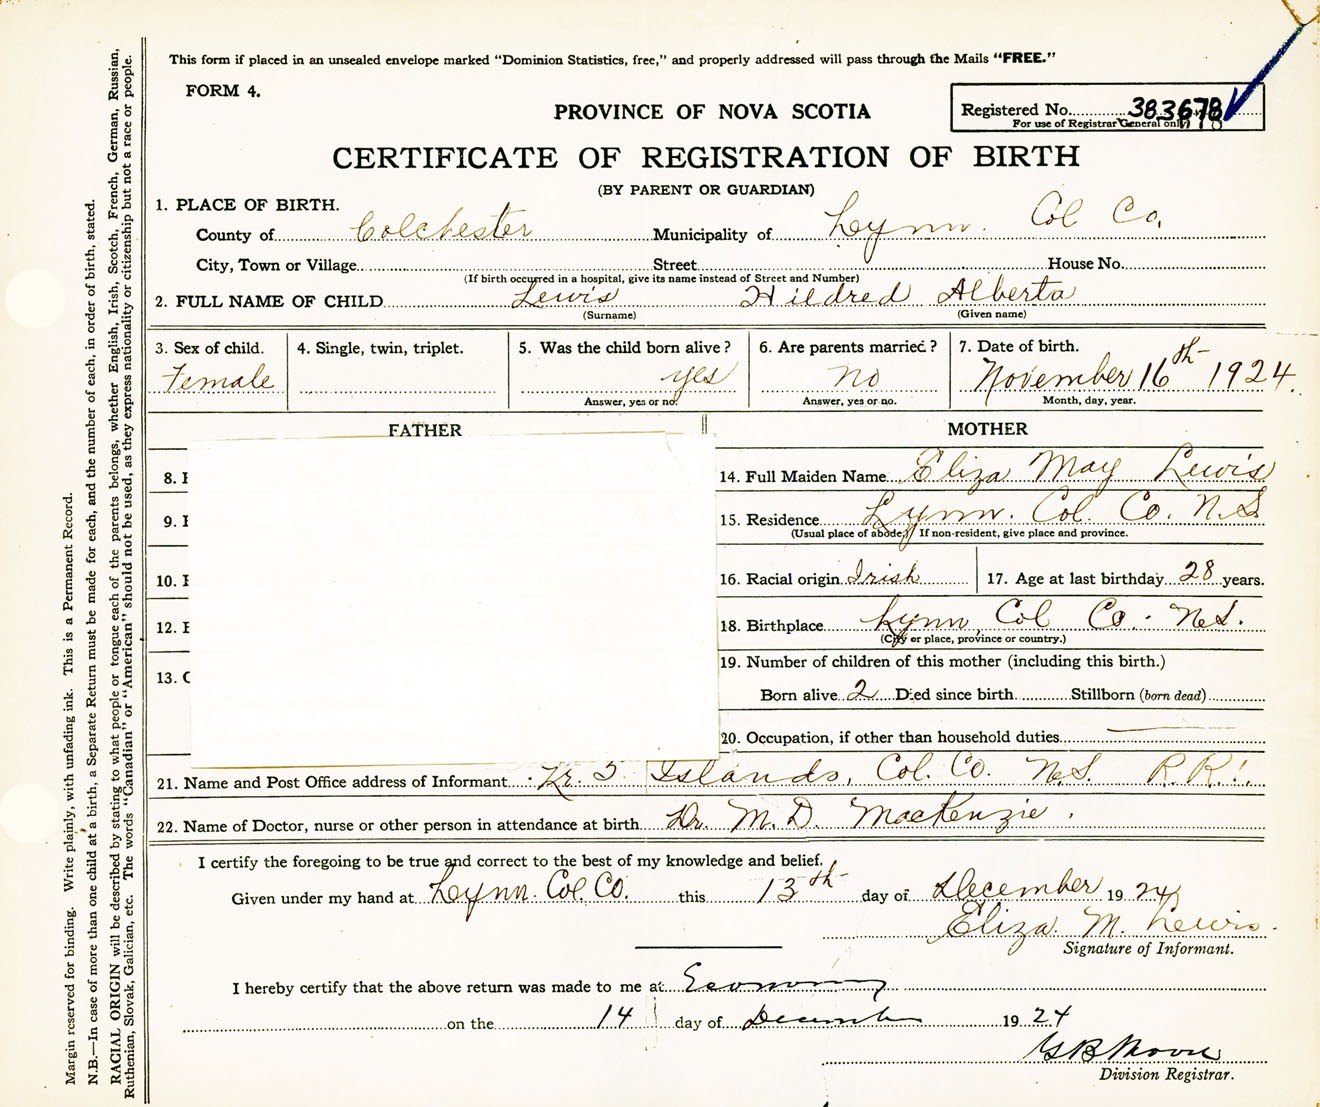 This form if placed in an unsealed envelope marked “Dominion Statistics, free,” and properly addressed will pass through the Mails “FREE.”
FORM 4.
PROVINCE OF NOVA SCOTIA
Registered No. 383678
For use of Registrar General only
CERTIFICATE OF REGISTRATION OF BIRTH
(BY PARENT OR GUARDIAN)
1. PLACE OF BIRTH.
County of Colchester Municipality of Lynn. Col Co,
City, Town or Village Street House No.
(If birth occurred in a hospital, give its name instead of Street and Number)
2. FULL NAME OF CHILD Lewis Hildred Alberta
(Surname) (Given name)
3. Sex of child. 4. Single, twin, triplet. 5. Was the child born alive? 6. Are parents married? 7. Date of birth.
Female yes no November 16th 1924.
Answer, yes or no. Answer, yes or no. Month, day, year.
FATHER MOTHER
8. 14. Full Maiden Name Eliza May Lewis
9. 15. Residence Lynn. Col. Co. N.S.
(Usual place of abode.) If non-resident, give place and province.
10. 16. Racial origin Irish 17. Age at last birthday 28 years.
12. 18. Birthplace Lynn Col Co. N.S.
(City or place, province or country.)
13. 19. Number of children of this mother (including this birth.)
Born alive 2 Died since birth Stillborn (born dead)
20. Occupation, if other than household duties
21. Name and Post Office address of Informant 5 Islands, Col. Co. N.S. R.R.1.
22. Name of Doctor, nurse or other person in attendance at birth Dr. M.D. MacKenzie.
I certify the foregoing to be true and correct to the best of my knowledge and belief.
Given under my hand at Lynn Col. Co. this 13th day of December 1924
Eliza M. Lewis.
Signature of Informant.
I hereby certify that the above return was made to me at Economy
on the 14 day of December 1924
G B Moore
Division Registrar.
Margin reserved for binding. Write plainly, with unfading ink. This is a Permanent Record.
N.B.—In case of more than one child at a birth, a Separate Return must be made for each, and the number of each, in order of birth, stated.
RACIAL ORIGIN will be described by stating to what people or tongue each of the parents belongs, whether English, Irish, Scotch, French, German, Russian,
Ruthenian, Slovak, Galician, etc. The words “Canadian” or “American” should not be used, as they express nationality or citizenship but not a race or people.